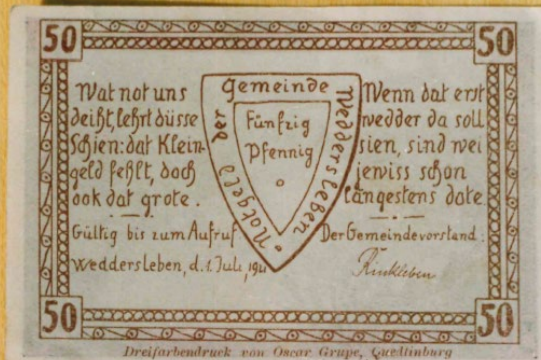 50
50
Wat not uns
deiht, lehrt düsse
Schien: dat Klein-
geld fehlt, doch
ook dat grote.
Notgeld der Gemeinde Weddersleben
Fünfzig
Pfennig
Wenn dat erst
wedder da soll
sien, sind wei
jewiss schon
längestens dote.
Gültig bis zum Aufruf
Der Gemeindevorstand:
Weddersleben, d. 1. Juli
50
50
Dreifarbendruck von Oscar Grupe, Quedlinburg